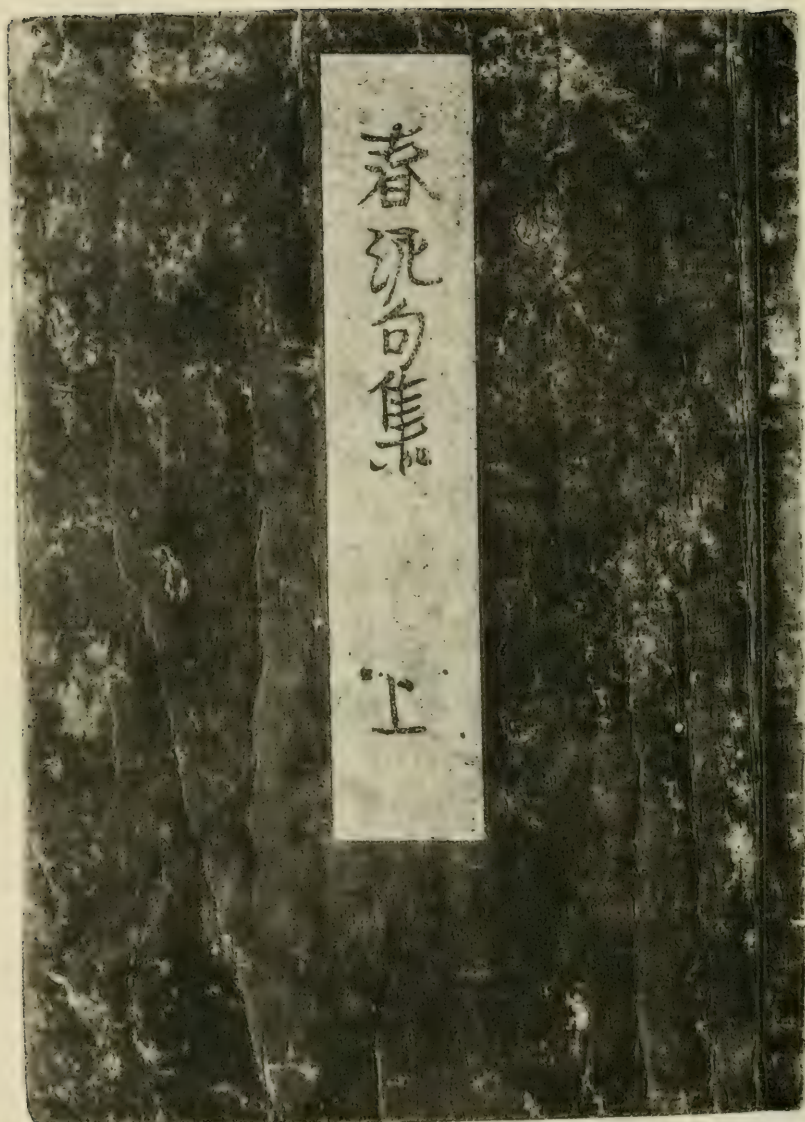 春泥句集 上